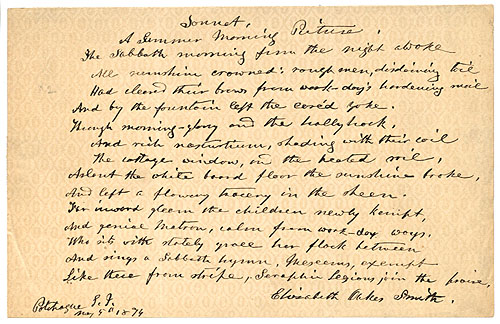 Sonnet,
A Summer Morning Picture.
The Sabbath morning from the night awoke
All sunshine crowned: rough men, disdaining toil
Had cleared their brows from work-day's hardening moil
And by the fountain left the yoke.
Though morning-glory and the hollyhock,
And rich nasturtium, shading with their coil
The cottage window, on the heated soil,
Aslant the white board floor the sunshine broke,
And left a flowery tracery in the sheen.
Far inward gleam the children newly kempt,
And genial Matron, calm from work-day ways,
Who sits with stately grace her flock between
And sings a Sabbath hymn, exempt
Like thee from strife, Seraphic legions join the praise,
Elizabeth Oakes Smith.
Patchogue L. I.
5th 1874